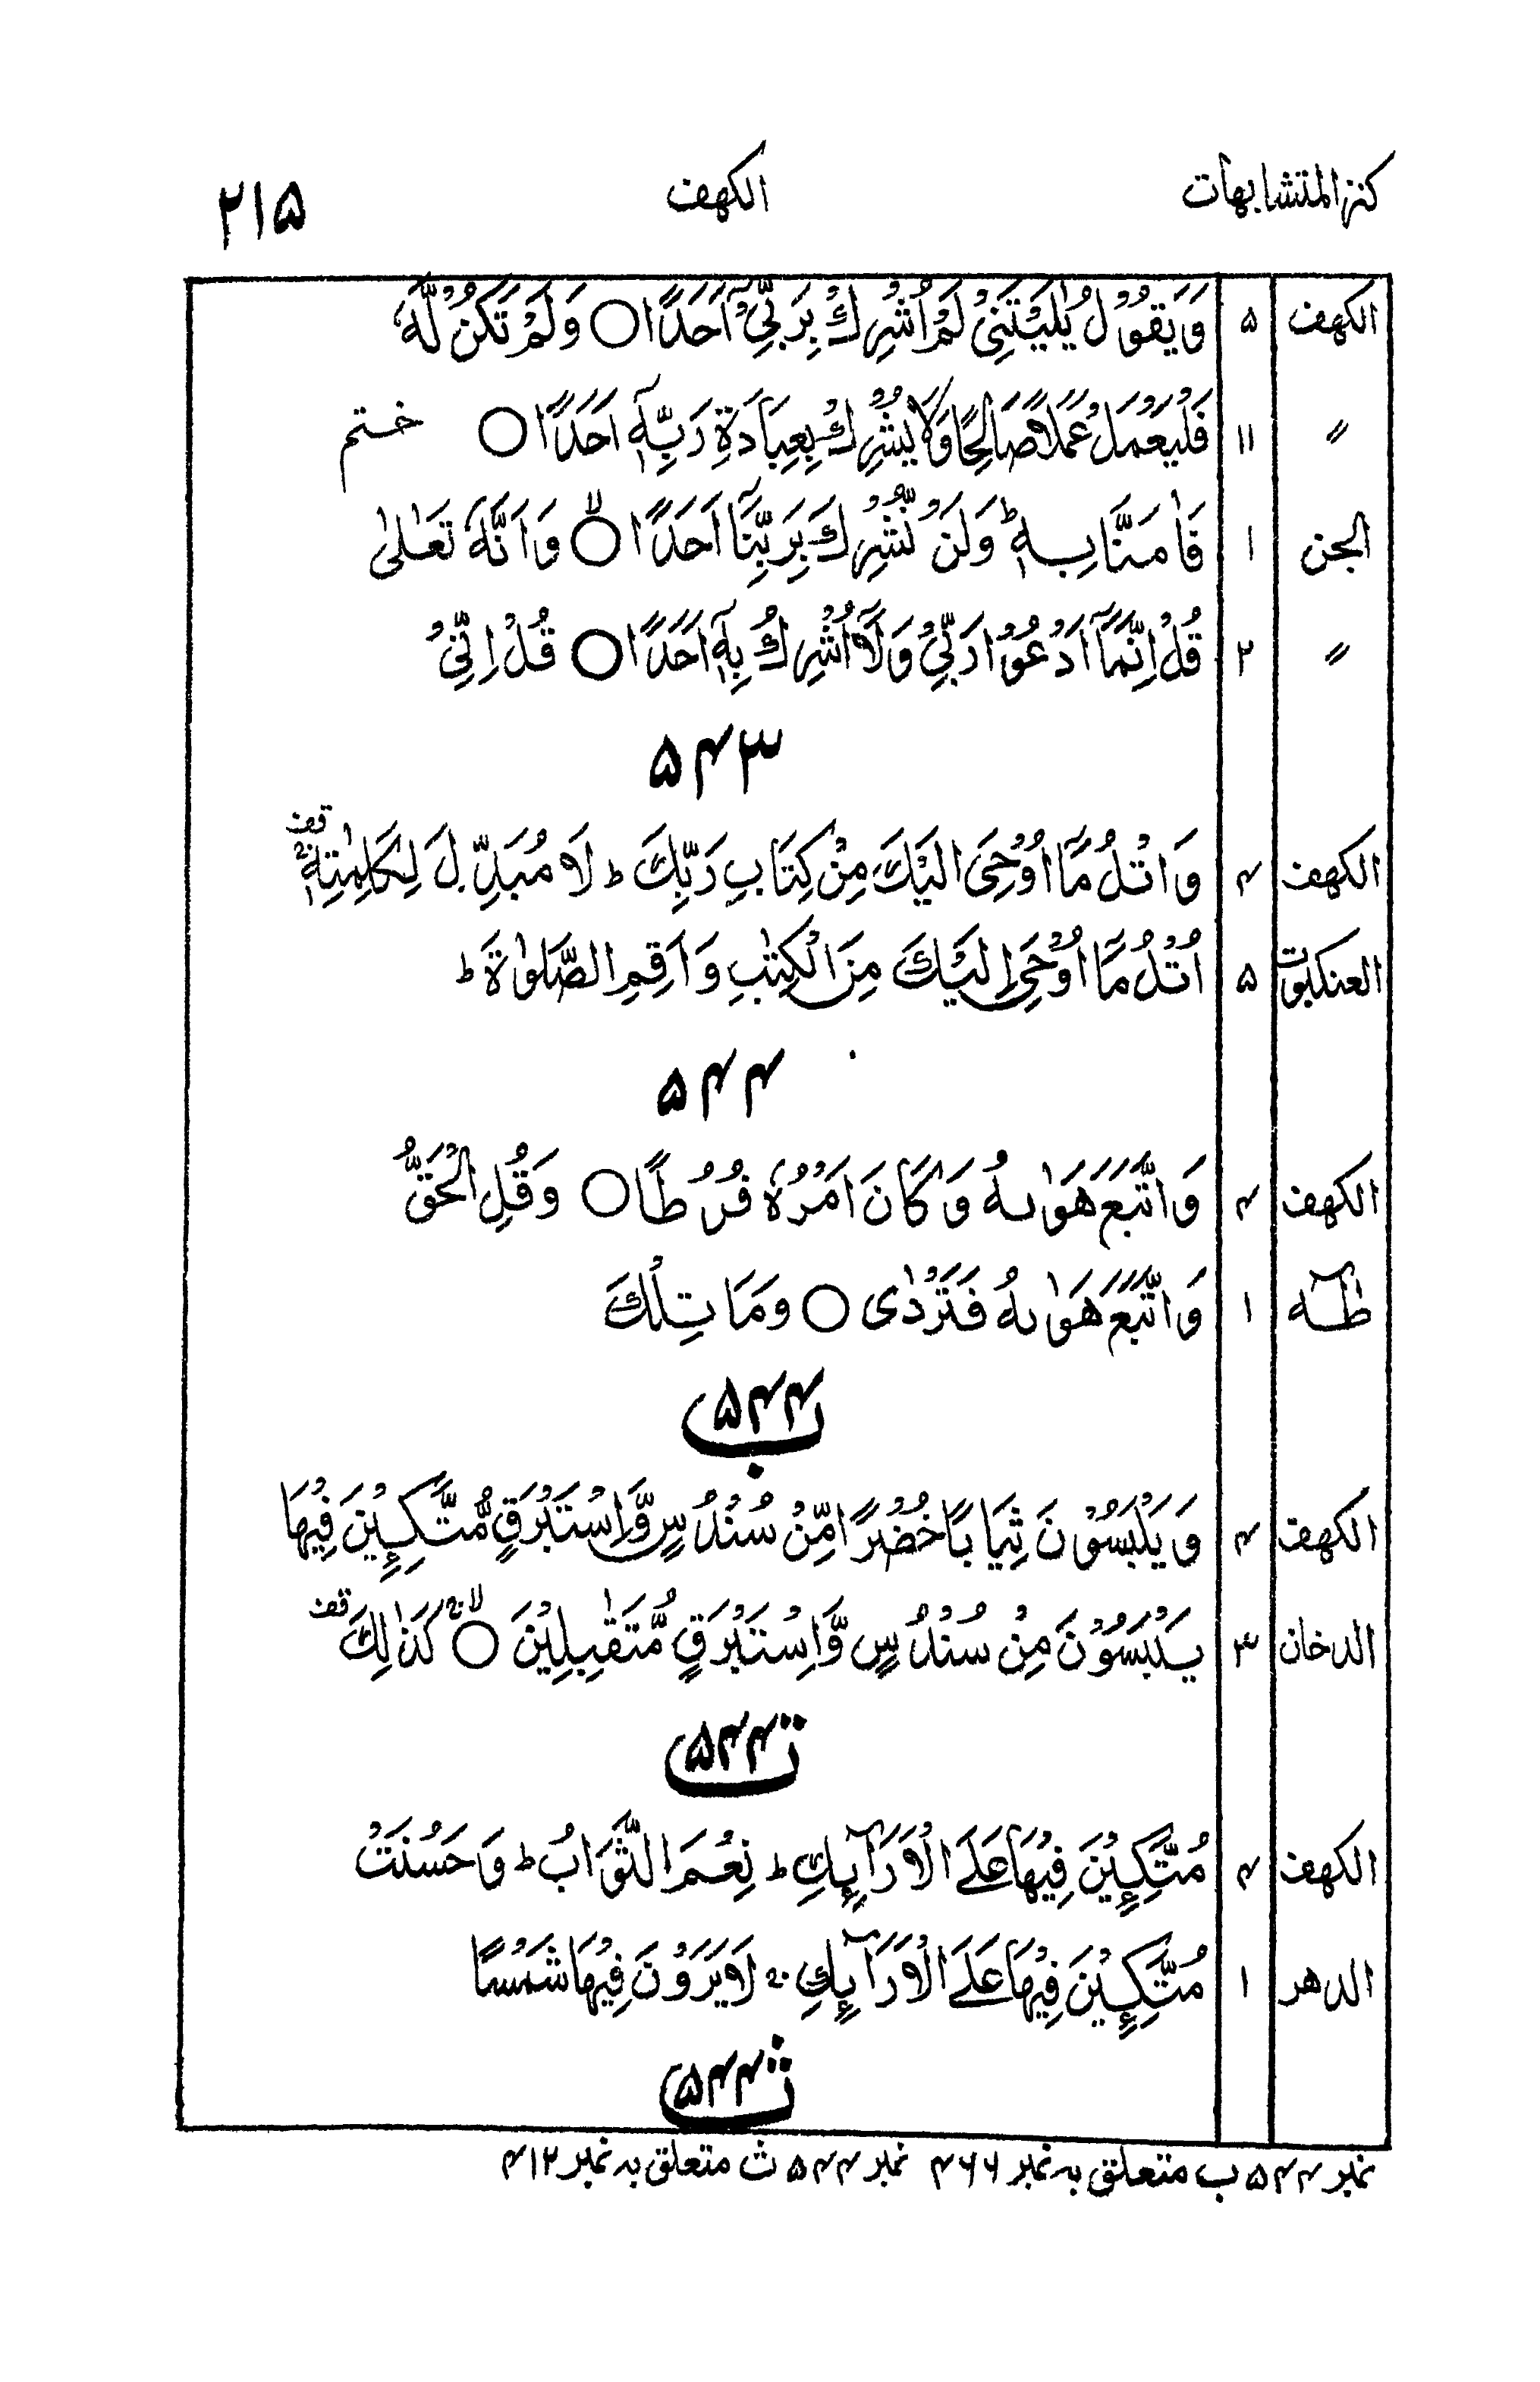 كنز المتشابهات الكهف ۲۱۵
الكهف ۵ وَيَقُوْلُ يٰلَيْتَنِيْ لَمْ اُشْرِكْ بِرَبِّيْٓ اَحَدًا ○ وَلَمْ تَكُنْ لَّهٗ
〃 ۱۱ فَلْيَعْمَلْ عَمَلًا صَالِحًا وَّلَا يُشْرِكْ بِعِبَادَةِ رَبِّهٖٓ اَحَدًا ○ ختم
الجن ۱ فَاٰمَنَّا بِهٖ ؕ وَلَنْ نُّشْرِكَ بِرَبِّنَآ اَحَدًا ○ۙ وَاَنَّهٗ تَعٰلٰى
〃 ۲ قُلْ اِنَّمَآ اَدْعُوْا رَبِّيْ وَلَآ اُشْرِكُ بِهٖٓ اَحَدًا ○ قُلْ اِنِّيْ
۵۴۳
الكهف ۴ وَاتْلُ مَآ اُوْحِيَ اِلَيْكَ مِنْ كِتَابِ رَبِّكَ ؕ لَا مُبَدِّلَ لِكَلِمٰتِهٖ ۚ قف
العنكبوت ۵ اُتْلُ مَآ اُوْحِيَ اِلَيْكَ مِنَ الْكِتٰبِ وَاَقِمِ الصَّلٰوةَ ؕ
۵۴۴
الكهف ۴ وَاتَّبَعَ هَوٰىهُ وَكَانَ اَمْرُهٗ فُرُطًا ○ وَقُلِ الْحَقُّ
طٰهٰ ۱ وَاتَّبَعَ هَوٰىهُ فَتَرْدٰى ○ وَمَا تِلْكَ
۵۴۴ ب
الكهف ۴ وَيَلْبَسُوْنَ ثِيَابًا خُضْرًا مِّنْ سُنْدُسٍ وَّاِسْتَبْرَقٍ مُّتَّكِـِٕيْنَ فِيْهَا
الدخان ۳ يَلْبَسُوْنَ مِنْ سُنْدُسٍ وَّاِسْتَبْرَقٍ مُّتَقٰبِلِيْنَ ○ۚۙ كَذٰلِكَ قف
۵۴۴ ت
الكهف ۴ مُتَّكِـِٕيْنَ فِيْهَا عَلَى الْاَرَآىِٕكِ ؕ نِعْمَ الثَّوَابُ ؕ وَحَسُنَتْ
الدهر ۱ مُتَّكِـِٕيْنَ فِيْهَا عَلَى الْاَرَآىِٕكِ ۚ لَا يَرَوْنَ فِيْهَا شَمْسًا
۵۴۴ ث
نمبر ۵۴۴ ب متعلق بہ نمبر ۴۶۶ نمبر ۵۴۴ ث متعلق بہ نمبر ۴۱۲